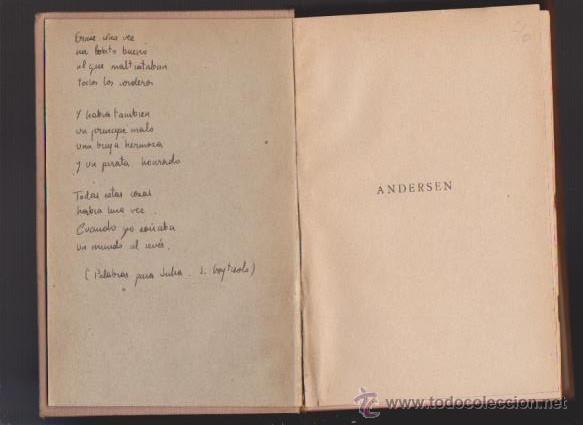 Erase una vez
un lobito bueno
al que maltrataban
todos los corderos
Y habia tambien
un principe malo
una bruja hermosa
y un pirata honrado
Todas estas cosas
habia una vez.
Cuando yo soñaba
un mundo al revés.
(Palabras para Julia. J. Goytisolo)
ANDERSEN
www.todocoleccion.net